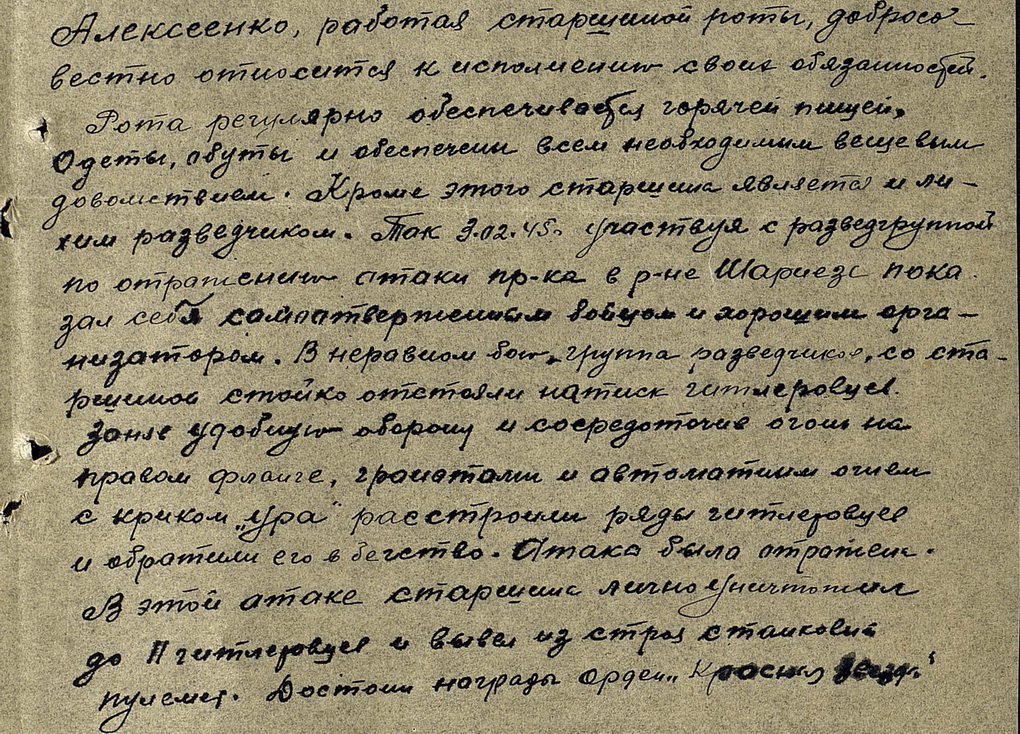 Алексеенко, работая старшиной роты, добросо-
вестно относится к исполнению своих обязанностей.
Рота регулярно обеспечивается горячей пищей,
Одеты, обуты и обеспечены всем необходимым вещевым
довольствием. Кроме этого старшина является и ли-
хим разведчиком. Так 3.02.45г участвуя с разведгруппой
по отражению атаки пр-ка в р-не пока
зал себя самоотверженным бойцом и хорошим орга-
низатором. В неравном бою, группа разведчиков, со ста-
ршиной стойко отстояли натиск гитлеровцев.
Заняв удобную оборону и сосредоточив огонь на
правом фланге, гранатами и автоматным огнем
с криком „Ура" расстроили ряды гитлеровцев
и обратили его в бегство. Атака была отражена.
В этой атаке старшина лично уничтожил
до 11 гитлеровцев и вывел из строя станковый
пулемет. Достоин награды Орден „Красная Звезда"